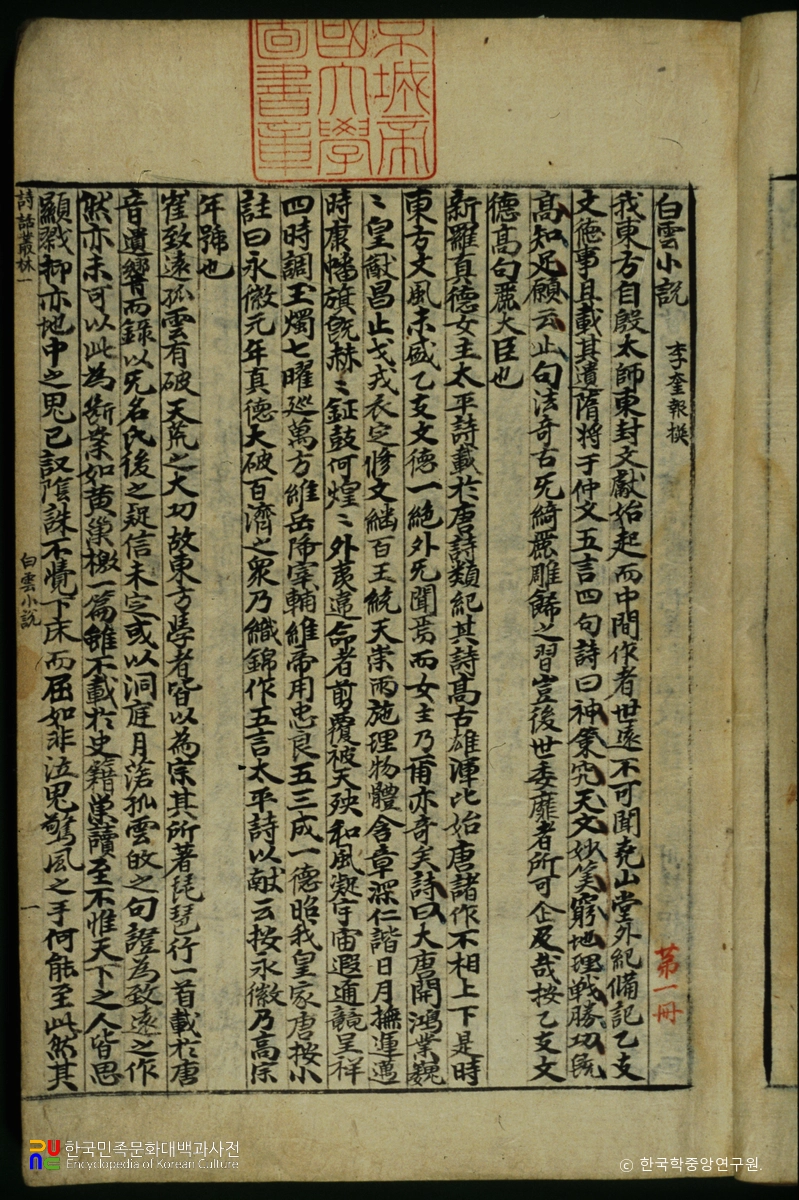 京城帝
國大學
圖書章
白雲小說 李奎報撰
第一冊
我東方自殷太師東封文獻始起而中間作者世遠不可聞堯山堂外紀備記乙支
文德事且載其遺隋將于仲文五言四句詩曰神策究天文妙筭窮地理戰勝功旣
高知足願云止句法奇古无綺麗雕餙之習豈後世委靡者所可企及哉按乙支文
德高句麗大臣也
新羅真德女主太平詩載於唐詩類紀其詩高古雄渾比始唐諸作不相上下是時
東方文風未盛乙支文德一絶外无聞焉而女主乃爾亦奇矣詩曰大唐開鴻業巍
〻皇猷昌止戈戎衣定修文繼百王統天崇雨施理物體含章深仁諧日月撫運邁
時康幡旗旣赫〻鉦鼓何煌〻外夷違命者剪覆被天殃和風凝宇宙遐邇競呈祥
四時調玉燭七曜巡萬方維岳降宰輔維帝用忠良五三成一德昭我皇家唐按小
註曰永徽元年真德大破百濟之衆乃織錦作五言太平詩以献云按永徽乃高宗
年號也
崔致遠孤雲有破天荒之大功故東方學者皆以為宗其所著琵琶行一首載於唐
音遺響而錄以无名氏後之疑信未定或以洞庭月落孤雲故之句證為致遠之作
然亦未可以此為斷案如黃巢檄一篇雖不載於史籍巢讀至不惟天下之人皆思
顯戮抑亦地中之鬼已議隂誅不覺下床而屈如非泣鬼驚風之手何能至此然其
詩話叢林一 白雲小說 一
한국민족문화대백과사전
Encyclopedia of Korean Culture
© 한국학중앙연구원.